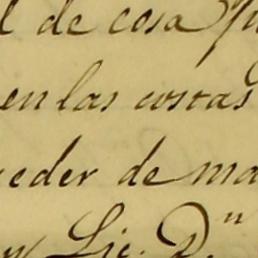 l de cosa
en las costas
eder de ma
Lic. D.ⁿ